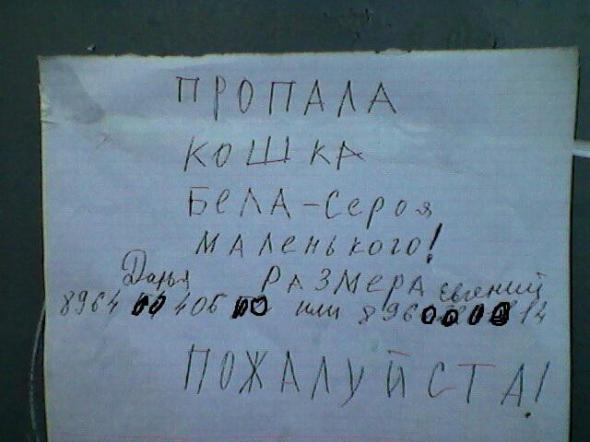 ПРОПАЛА
КОШКА
БЕЛА-Сероя
маленького!
Дарья РАЗМЕРА евгений
8964 00 406 00 или 8960000814
ПОЖАЛУЙСТА!